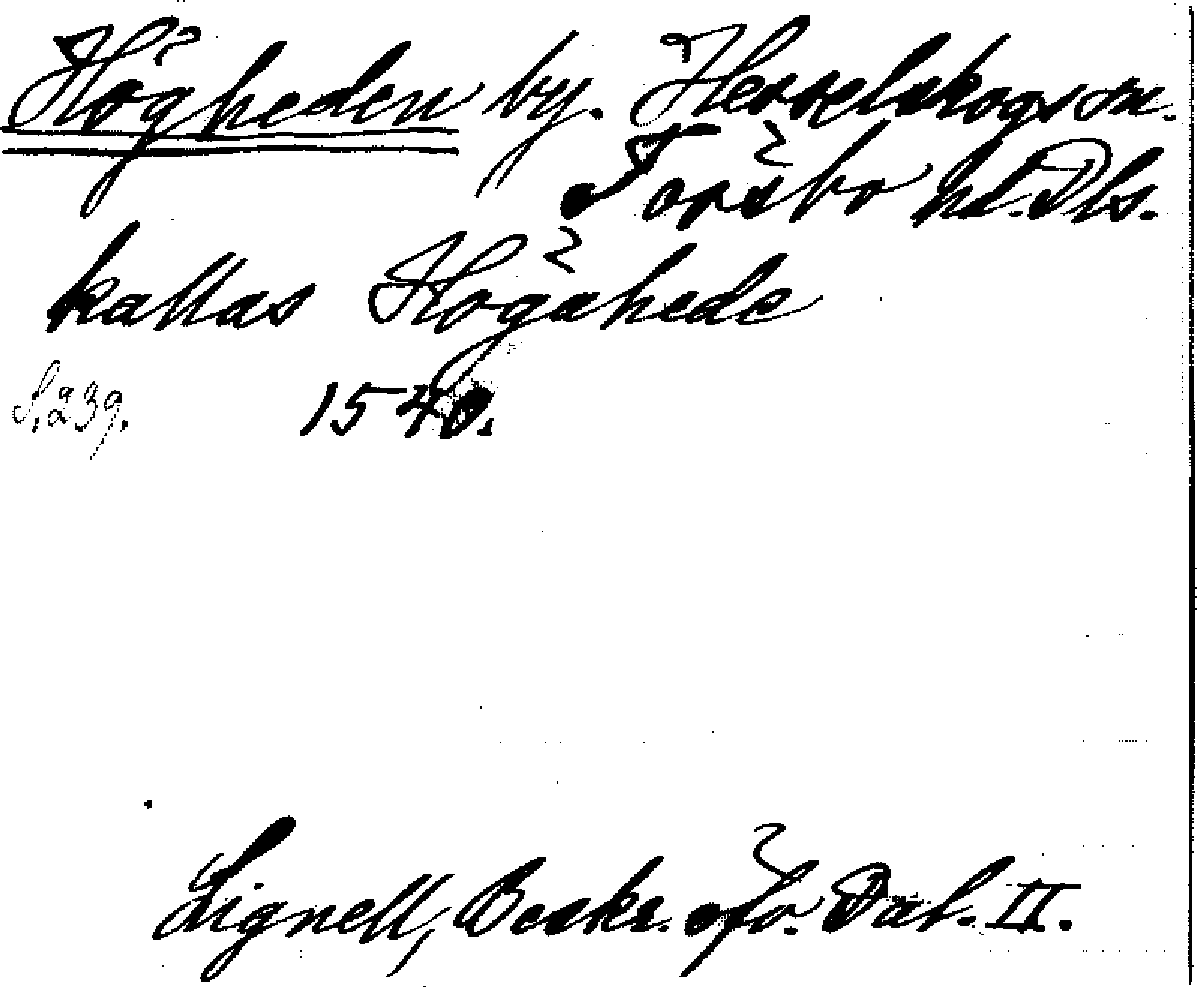 Högheden by. Hesselskogs sn.
Tössbo hd. Dls.
kallas Högahede
S. 239. 1540.
Lignell, Beskr. öfv. Dal. II.